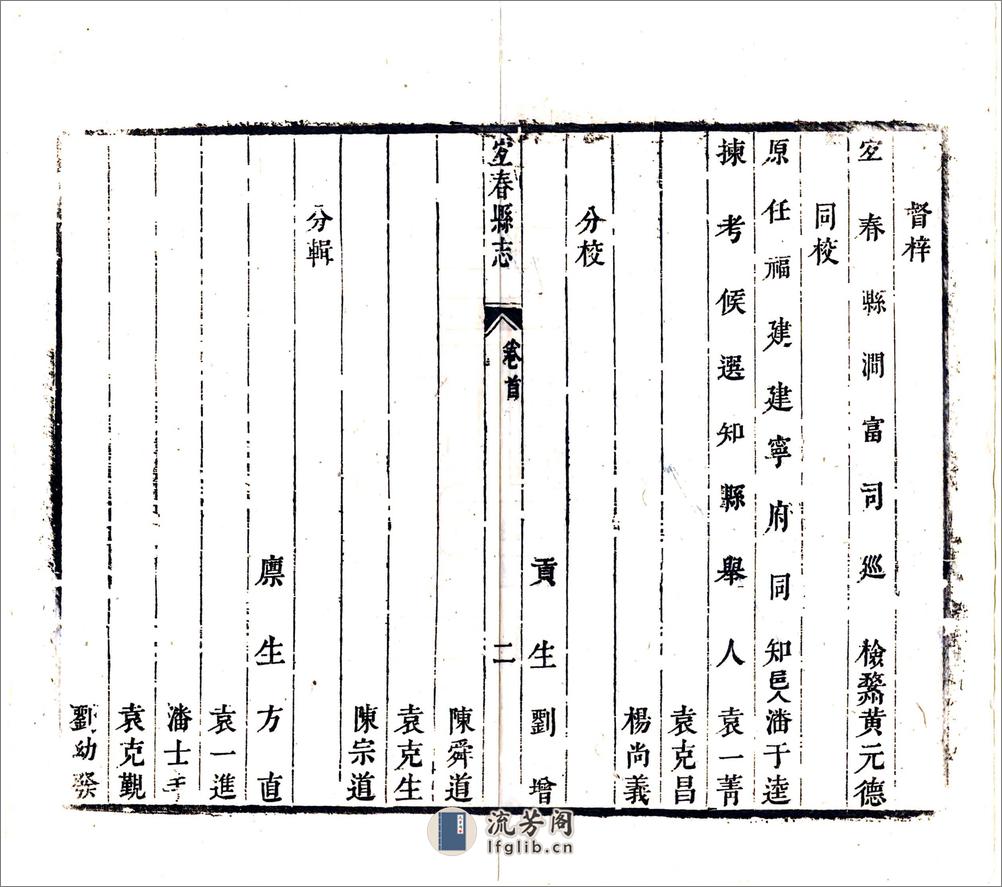 督梓
宐春縣澗富司巡檢黃元德
同校
原任福建建寧府同知邑人潘于逵
揀考候選知縣舉人袁一菁
袁克昌
楊尚義
分校
貢生劉增
宐春縣志 卷首 二
陳舜道
袁克生
陳宗道
分輯
廩生方直
袁一進
潘士
袁克觀
劉幼發
流芳阁
lfglib.cn